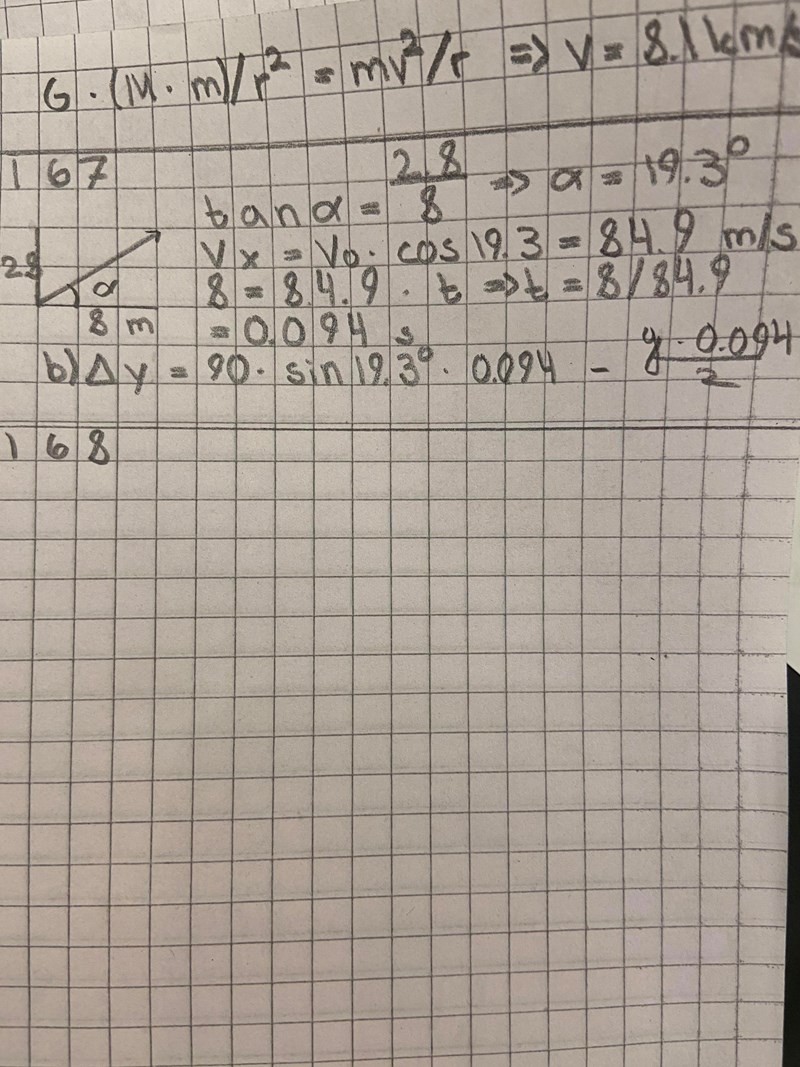 G · (M · m)/r² = mv²/r => v = 8.1 km/s
167
tanα = 2.8/8 => α = 19.3°
Vx = V₀ · cos 19.3 = 84.9 m/s
28
α
8 = 84.9 · t => t = 8/84.9
8 m
= 0.094 s
b) Δy = 90 · sin 19.3° · 0.094 - g · 0.094/2
168